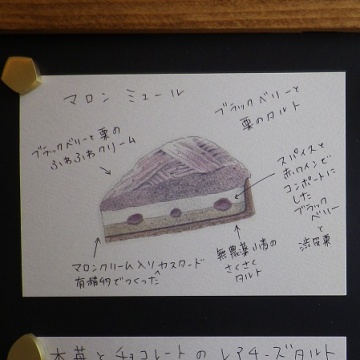 マロン ミュール
ブラックベリーと
栗のタルト
ブラックベリーと栗の
ふわふわクリーム
スパイスと
赤ワインで
コンポートに
した
ブラック
ベリー
と
渋皮栗
マロンクリーム入りカスタード
有精卵でつくった
無農薬小麦の
さくさく
タルト
木苺とチョコレートのレアチーズタルト